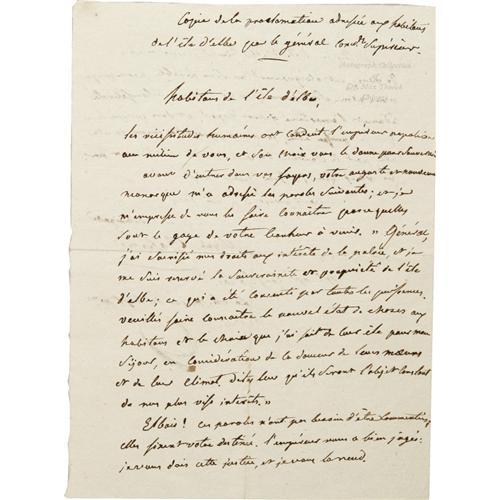 Copie de la proclamation adressée aux habitans
de l'île d'elbe par le général Com.dt Supérieur.
habitans de l'île d'elbe,
les vicissitudes humaines ont conduit l'empereur napoléon
au milieu de vous, et son choix vous le donne pour Souverain
avant d'entrer dans vos foyers, votre auguste et nouveau
monarque m'a adressé les paroles suivantes; et je
m'empresse de vous les faire connaître parce qu'elles
sont le gage de votre bonheur à venir. » Général,
j'ai sacrifié mes droits aux intérêts de la patrie, et je
me suis réservé la Souveraineté et propriété de l'île
d'elbe; ce qui a été consenti par toutes les puissances.
veuillés faire connaître le nouvel état de choses aux
habitans et le choix que j'ai fait de leur île pour mon
Séjour, en considération de la douceur de leurs mœurs
et de leur climat, dites leur qu'ils seront l'objet constant
de mes plus vifs intérêts. »
Elbois! ces paroles n'ont pas besoin d'être commentées,
elles fixent votre destinée. l'empereur vous a bien jugés:
je vous dois cette justice, et je vous la rends.